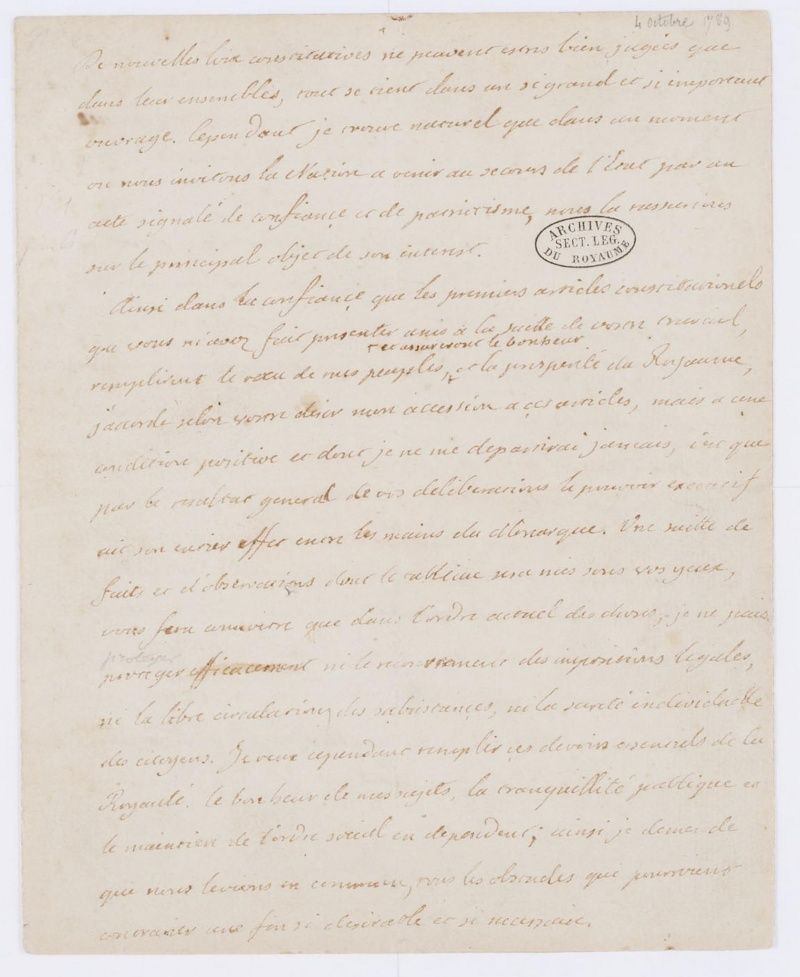 4 Octobre 1789
De nouvelles loix constitutives ne peuvent estre bien jugées que
dans leur ensembles, tout se tient dans un si grand et si important
ouvrage. Cependant je trouve naturel que dans un moment
ou nous invitons la Nation a venir au secours de l'Etat par un
acte signalé de confiance et de patriotisme, nous la rassurions
sur le principal objet de son interest.
ARCHIVES
SECT. LEG.
DU ROYAUME
Ainsi dans la confiance que les premiers articles constitutionels
que vous m'avez fait presenter unis à la suitte de votre travail,
et assureront le bonheur
rempliront le vœu de mes peuples, et la prosperité du Royaume,
j'accorde selon votre desir mon accession a ces articles, mais a une
condition positive et dont je ne me departirai jamais, c'est que
par le resultat general de vos deliberations le pouvoir executif
ait son entier effet entre les mains du Monarque. Une suitte de
faits et d'observations dont le tableau sera mis sous vos yeux,
vous fera connoitre que dans l'ordre actuel des choses, je ne puis
proteger
proteger efficacement ni le recouvrement des impositions legales,
ni la libre circulation des subsistances, ni la sureté individuelle
des citoyens. Je veux cependant remplir ces devoirs essentiels de la
Royauté. le bonheur de mes sujets, la tranquillité publique et
le maintien de l'ordre social en dependent; ainsi je demande
que nous levions en commun, tous les obstacles que pourroient
contrarier une fin si desirable et si necessaire.